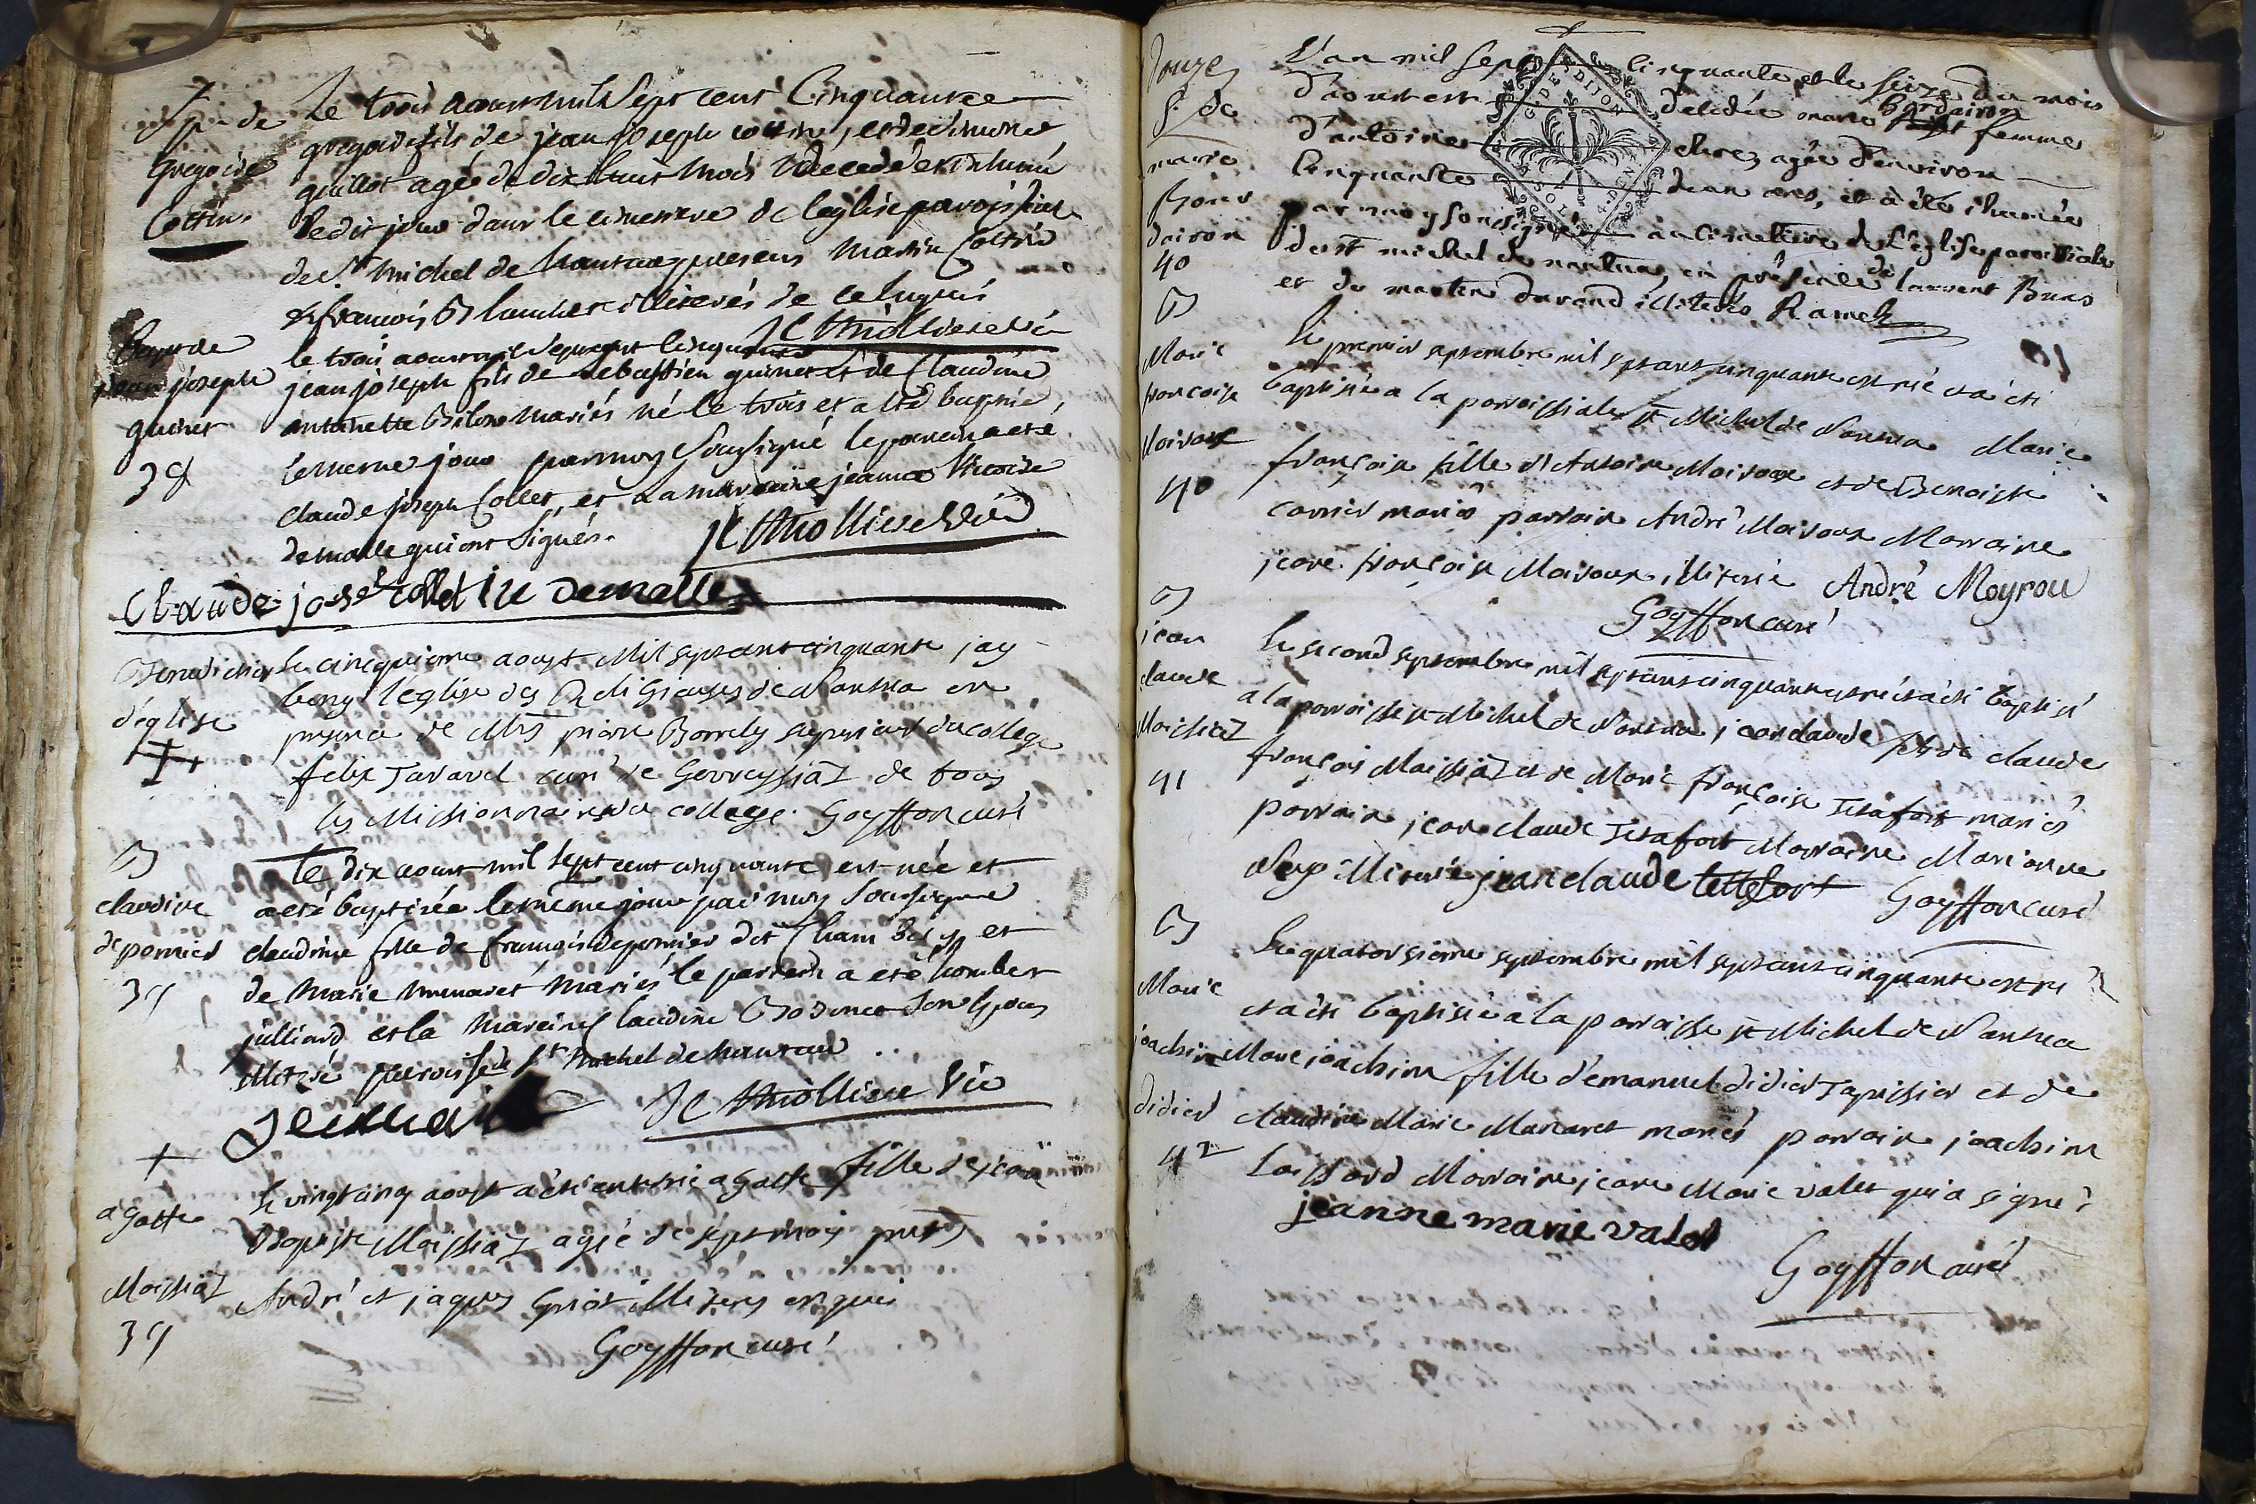 s. de
Gregoire
Cottin
Le trois aoust mil sept cent Cinquante
gregoire fils de jean joseph cottin, et de
guillot agée de dix huit mois decedé et inhumé
ledit jour dans le cimetiere de leglise paroissiale
de St michel de nantua presens Martin Cottin
et françois Blanchet illiterés de ce enquis
JC Thiolliere Vic
Bapt de
jean joseph
guinet
38
le trois aoust mil sept cent cinquante
jean joseph fils de sebastien guinet et de Claudine
antoinette mariés né le trois et a été baptisé
le meme jour par moy soussigné le parrain a eté
claude joseph Collet, et la marraine jeanne
demalle qui ont signés.
JC Thiolliere Vic
Claude josept collet IV demalle
Benediction
d'eglise
Le cinquieme aoust Mil sept cent cinquante jay
beny l'eglise des Religieuses de Nantua en
presence de Mrs pierre Borrely superieur du college
felix Tavard curé de Gevreyssiat de tous
les Missionnaires du college. Goyffon curé
B
claudine
depernier
39
le dix aoust mil sept cent cinquante est née et
a eté baptisée le meme jour par moy soussigné
claudine fille de françois depernier dit et
de Marie Mariés le parrein a eté humbert
julliard et la Mareine Claudine Bodinet son epouse
illiterée paroisse de St michel de nantua
JC Thiolliere Vic
agatte
Moissiat
39
le vingt cinq aoust a été enterré agatte fille de jean
Baptiste Moissiat agée de sept mois presens
André et jaques illiterez enquis
Goyffon curé
Douze
S. de
marie
Bour
daison
40
L'an mil sept cinquante et le seize du mois
d'aoust est decedée marie Bordaison femme
d'antoine agée d'environ
Cinquante un ans, et a été ihumée
par moy soussigné au cimetiere de l'église paroissiale
de St michel de nantua, en présence de laurent
et de martin durand illiterés Ramel
B
Marie
françoise
Moiroux
40
Le premier septembre mil sept cent cinquante est née et a été
baptisée a la paroissiale St Michel de Nantua Marie
françoise fille d'Antoine Moiroux et de Benoiste
carrier mariés parrain André Moiroux Marraine
jeane françoise Moiroux illiterée André Moyrou
Goyffon curé
B
jean
claude
Moissiat
41
Le second septembre mil sept cent cinquante est né et a été baptisé
a la paroisse St Michel de Nantua jean claude fils de claude
françois Moissiat et de Marie françoise Tetafort mariés
parrain jean claude Tetafort Marraine Marianne
illiterée jean claude tettefort Goyffon curé
B
Marie
joachim
didier
42
Le quatorsieme septembre mil sept cent cinquante est né
et a été baptisée a la paroisse St Michel de Nantua
Marie joachim fille d'emanuel didier Tapissier et de
claudine Marie Manaret mariés parrain joachim
Marraine jeane Marie valet qui a signé
jeanne marie valet
Goyffon curé